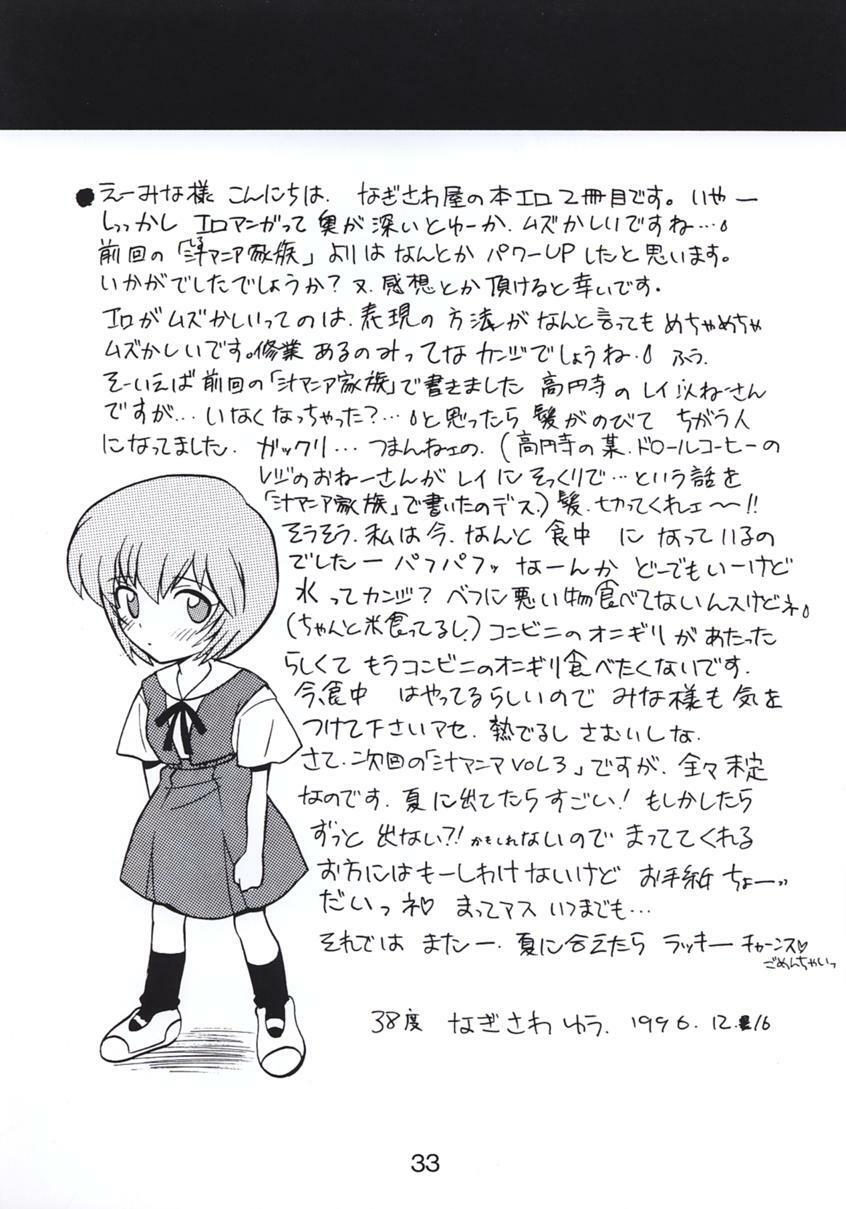 ●えーみな様 こんにちは、なぎさわ屋の本エロ2冊目です。いやー
しっかし エロマンガって 奥が深いとゆーか、ムズかしいですね…
前回の「汁マニア家族」よりは なんとか パワーUPしたと思います。
いかがでしたでしょうか？又、感想とか頂けると幸いです。
エロがムズかしいってのは、表現の方法がなんと言っても めちゃめちゃ
ムズかしいです。修業あるのみってなカンジでしょうね。ふう。
そーいえば前回の「汁マニア家族」で書きました 高円寺のレイ似ねーさん
ですが…いなくなっちゃった？…と思ったら 髪がのびて ちがう人
になってました。ガックリ…つまんねェの。(高円寺の某、ドロールコーヒーの
レジのおねーさんがレイにそっくりで…という話を
「汁マニア家族」で書いたのデス。)髪、切ってくれェ〜!!
そうそう、私は今、なんと 食中 に なっているの
でしたー パフパフッ なーんか どーでもいーけど
水ってカンジ？ ベツに悪い物食べてないんスけどネ
(ちゃんと米食ってるし。)コンビニのオニギリがあたった
らしくて もうコンビニのオニギリ食べたくないです。
今、食中 はやってるらしいので みな様も気を
つけて下さいアセ、熱でるし さむいしな。
さて、次回の「汁マニア VOL3」ですが、全々未定
なのです。夏に出てたらすごい！もしかしたら
ずっと 出ない?! かもしれないので まっててくれる
お方にはもーしわけないけど お手紙 ちょーッ
だいっネ♡ まってマス いつまでも…
それでは またー、夏に会えたら ラッキー チャーンス♡
ごめんちゃいっ
38度 なぎさわ ゆう. 1996. 12. 16
33